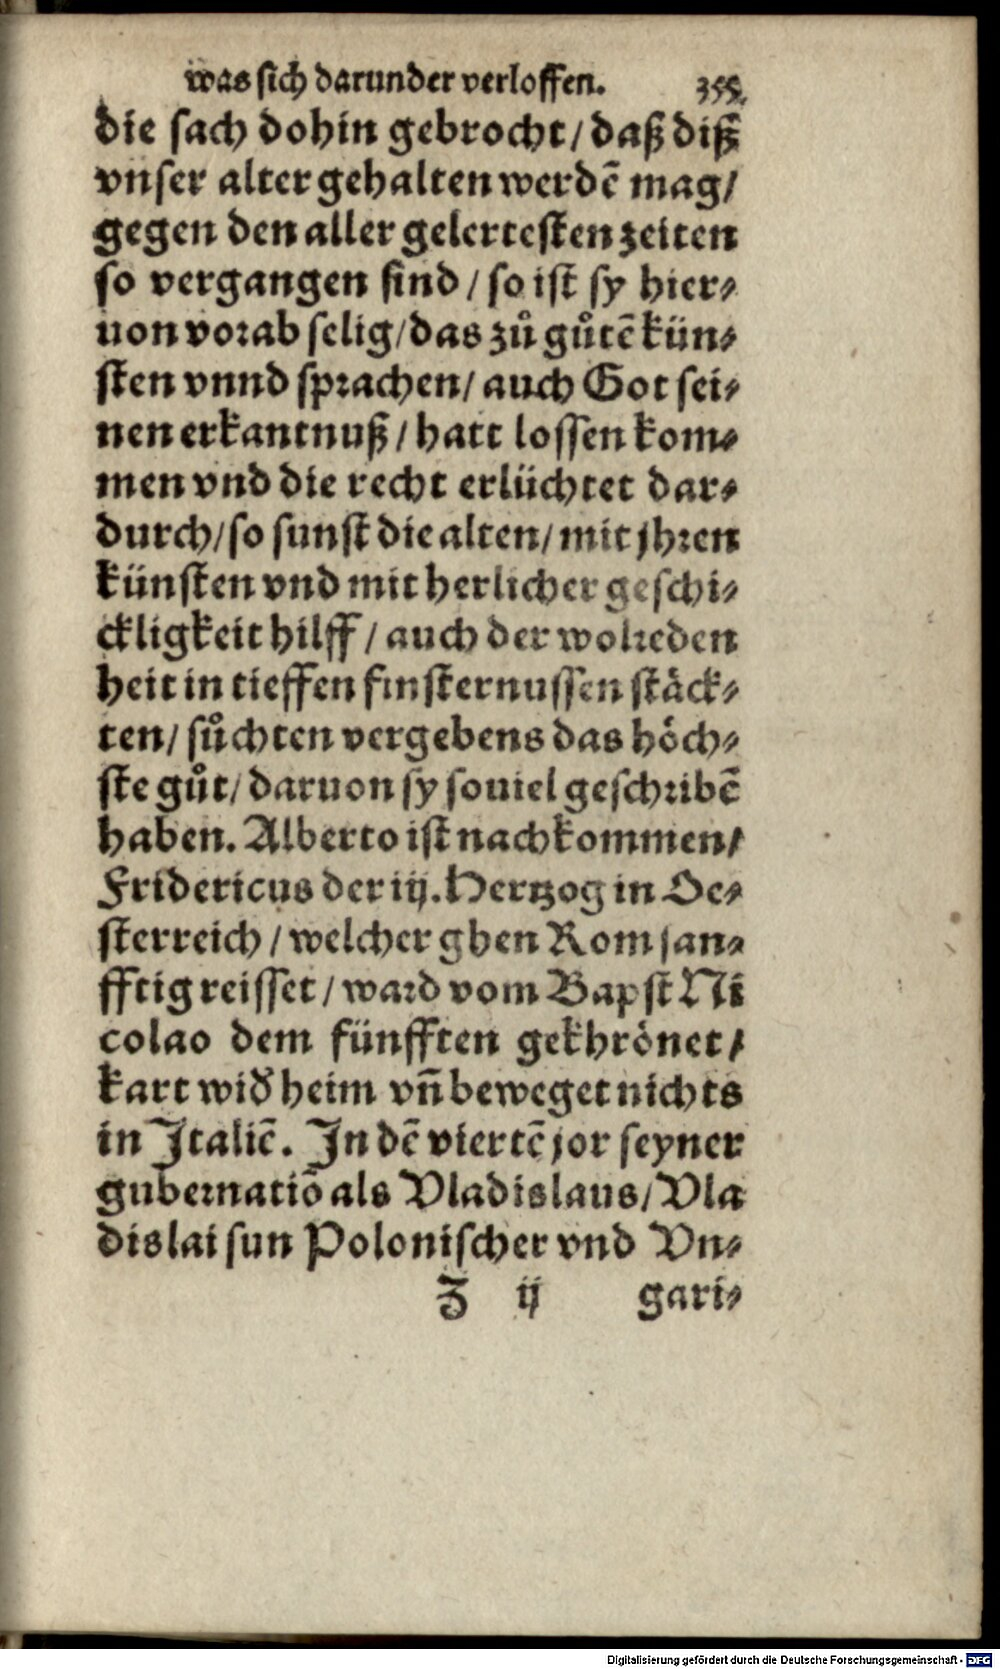 was sich darunder verloffen. 355.
die sach dohin gebrocht/ daß diß̃
vnser alter gehalten werdẽ mag/
gegen den aller gelertesten zeiten
so vergangen sind / so ist sy hier⸗
uon vorab selig/das zů gůtẽ kün⸗
sten vnnd sprachen/ auch Got sei⸗
nen erkantnuß / hatt lossen kom⸗
men vnd die recht erlüchtet dar⸗
durch/so sunst die alten/ mit jhren
künsten vnd mit herlicher geschi⸗
ckligkeit hilff / auch der wolreden
heit in tieffen finsternussen stäck⸗
ten/ sůchten vergebens das höch⸗
ste gůt/ daruon sy souiel geschribẽ
haben. Alberto ist nachkommen/
Fridericus der iij. Hertzog in Oe⸗
sterreich / welcher ghen Rom san⸗
fftig reisset / ward vom Bapst Ni
colao dem fünfften gekhrönet/
kart wid̃ heim vñ beweget nichts
in Italiẽ. In dẽ viertẽ jor seyner
gubernatiõ als Vladislaus/ Vla
dislai sun Polonischer vnd Vn⸗
Z ij gari⸗
Digitalisierung gefördert durch die Deutsche Forschungsgemeinschaft - DFG